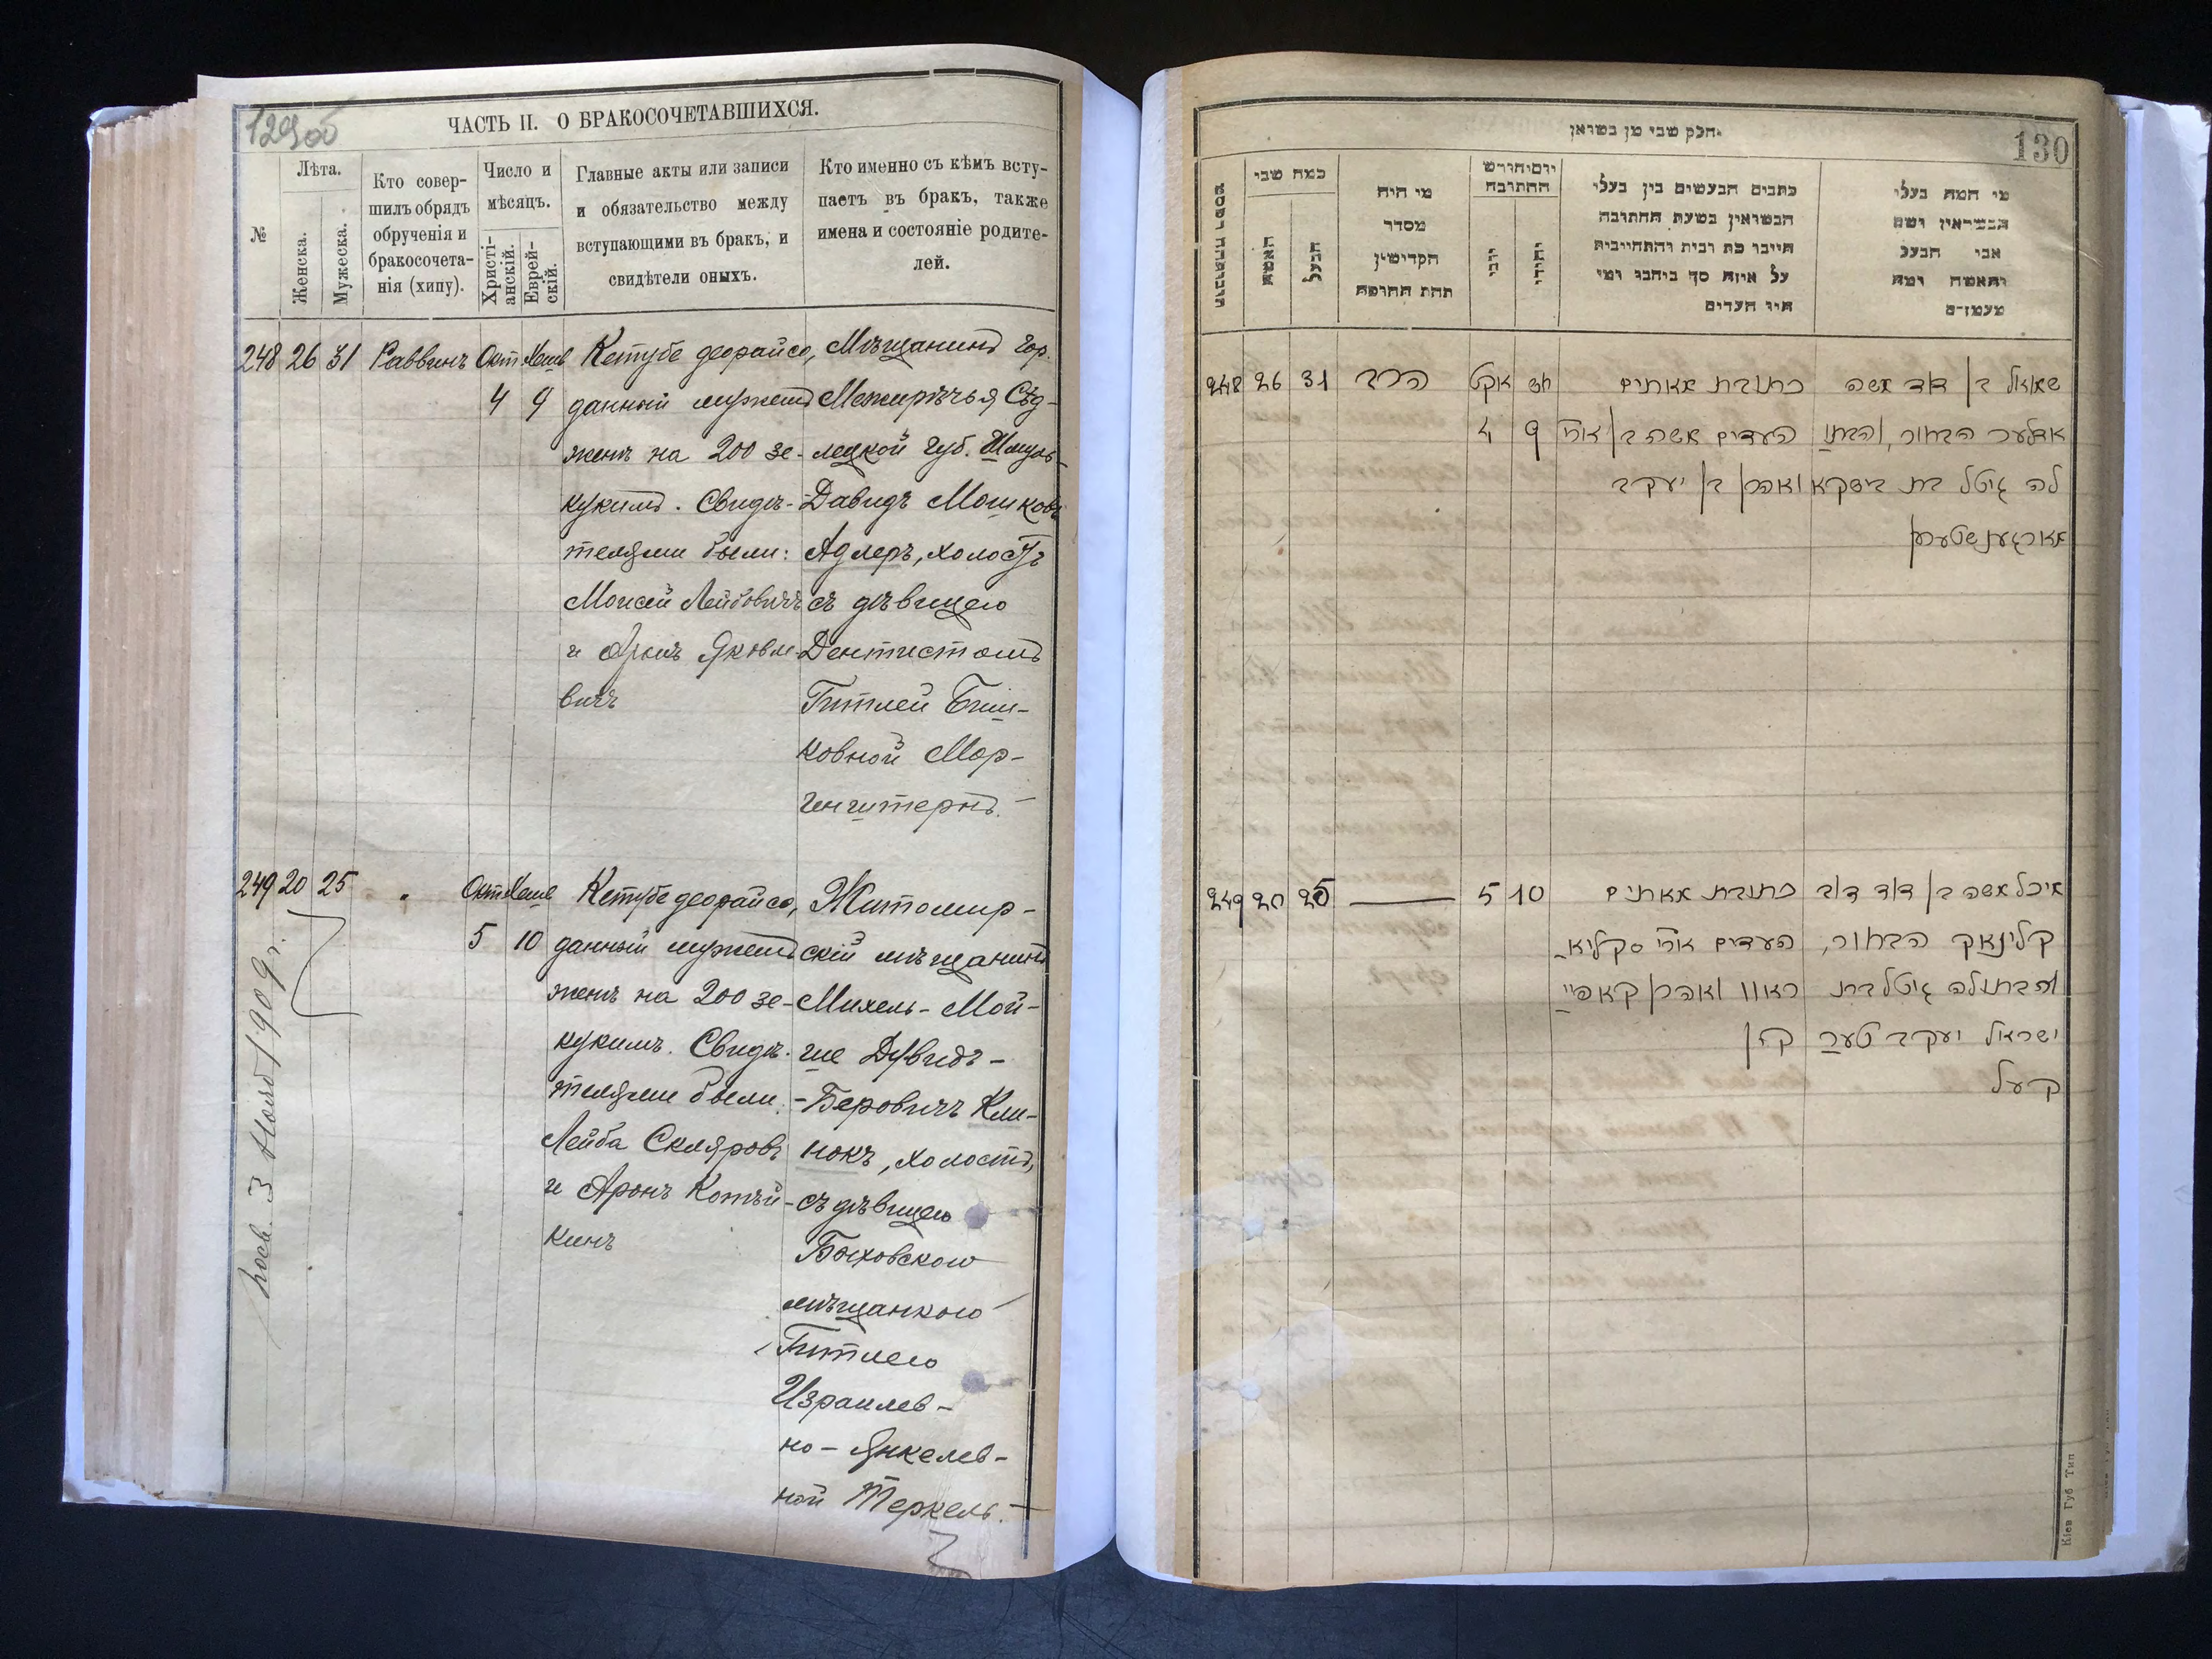 129об
ЧАСТЬ II. О БРАКОСОЧЕТАВШИХСЯ.
№
Лѣта.
Женска.
Мужеска.
Кто совер-
шилъ обрядъ
обрученія и
бракосочета-
нія (хипу).
Число и
мѣсяцъ.
Христі-
анскій.
Еврей-
скій.
Главные акты или записи
и обязательство между
вступающими въ бракъ, и
свидѣтели оныхъ.
Кто именно съ кѣмъ всту-
паетъ въ бракъ, также
имена и состояніе родите-
лей.
248 26 31 Раввинъ Окт Хешв
4 9
Кетубе деорайсо,
данный мужемъ
женѣ на 200 зе-
кукимъ. Свидѣ-
телями были:
Моисей Лейбовичъ
и Аронъ Яковле
вичъ
Мѣщанинъ гор.
Межирѣчья Сѣд-
лецкой губ. Шмуль-
-Давидъ Мошковъ
Адлеръ, холостъ
съ дѣвицею
Дентистомъ
Гитлей Биш-
ковной Мор-
генштернъ.
249 20 25 Окт Хешв
5 10
Кетубе деорайсо,
данный мужемъ
женѣ на 200 зе-
кукимъ. Свидѣ-
телями были:
Лейба Скляровъ
и Аронъ Копѣй-
кинъ
Житомир-
скій мѣщанинъ
Михель-Мой-
ше Дувидъ-
-Беровичъ Кли-
нокъ, холостъ,
съ дѣвицею
Быховскою
мѣщанкою
Гитлею
Израилев-
но-Янкелев-
ной Теркель.
3 Нояб 1909 г.
130
חלק שני מן נשואין
כמה שני
האשה
הבעל
מי היה
מסדר
הקדושין
תחת החופה
יום וחודש
החתונה
יוני
יהודי
כתבים הנעשים בין בעלי
הנשואין בשעת החתונה
על איזה סך ניתנו ומי
היו העדים
מי המה בעלי
הנשואין ושם
אבי הבעל
והאשה ומה
מעמדם
248 26 31 הרב אקט חש
4 9
כתובת מאתים
העדים משה ב
ואהרן בן יעקב
שמואל בן דוד משה
אדלער הבחור, והבתו
לה גיטל בת בישקא
מארגענשטערן
249 20 25 5 10
כתובת מאתים
העדים
ואהרן קאפיי
קין
מיכל משה בן דוד דוב
קלינאק הבחור,
והבתולה גיטל בת
ישראל יעקב טער
קעל
Кіев Губ Тип